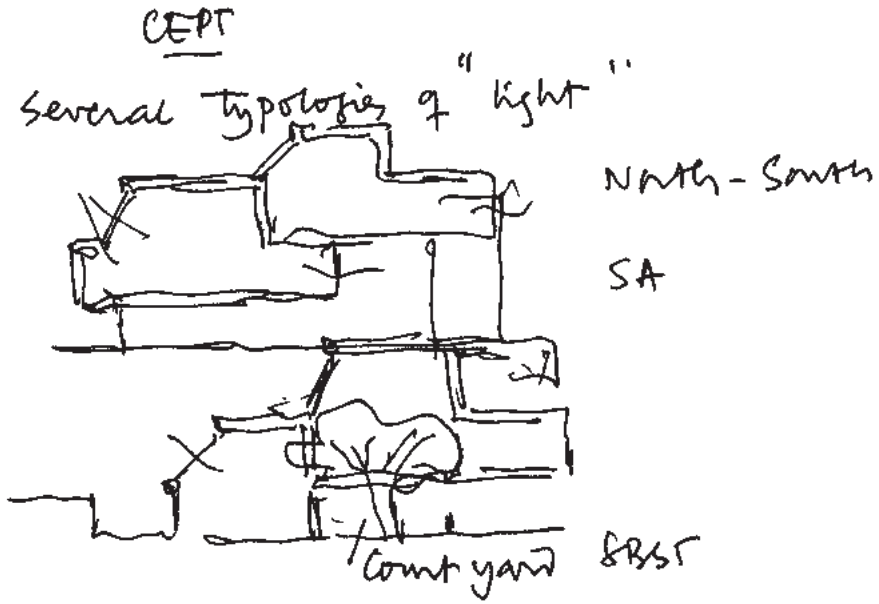 CEPT
Several Typologies of "light"
North - South
SA
Courtyard SBST